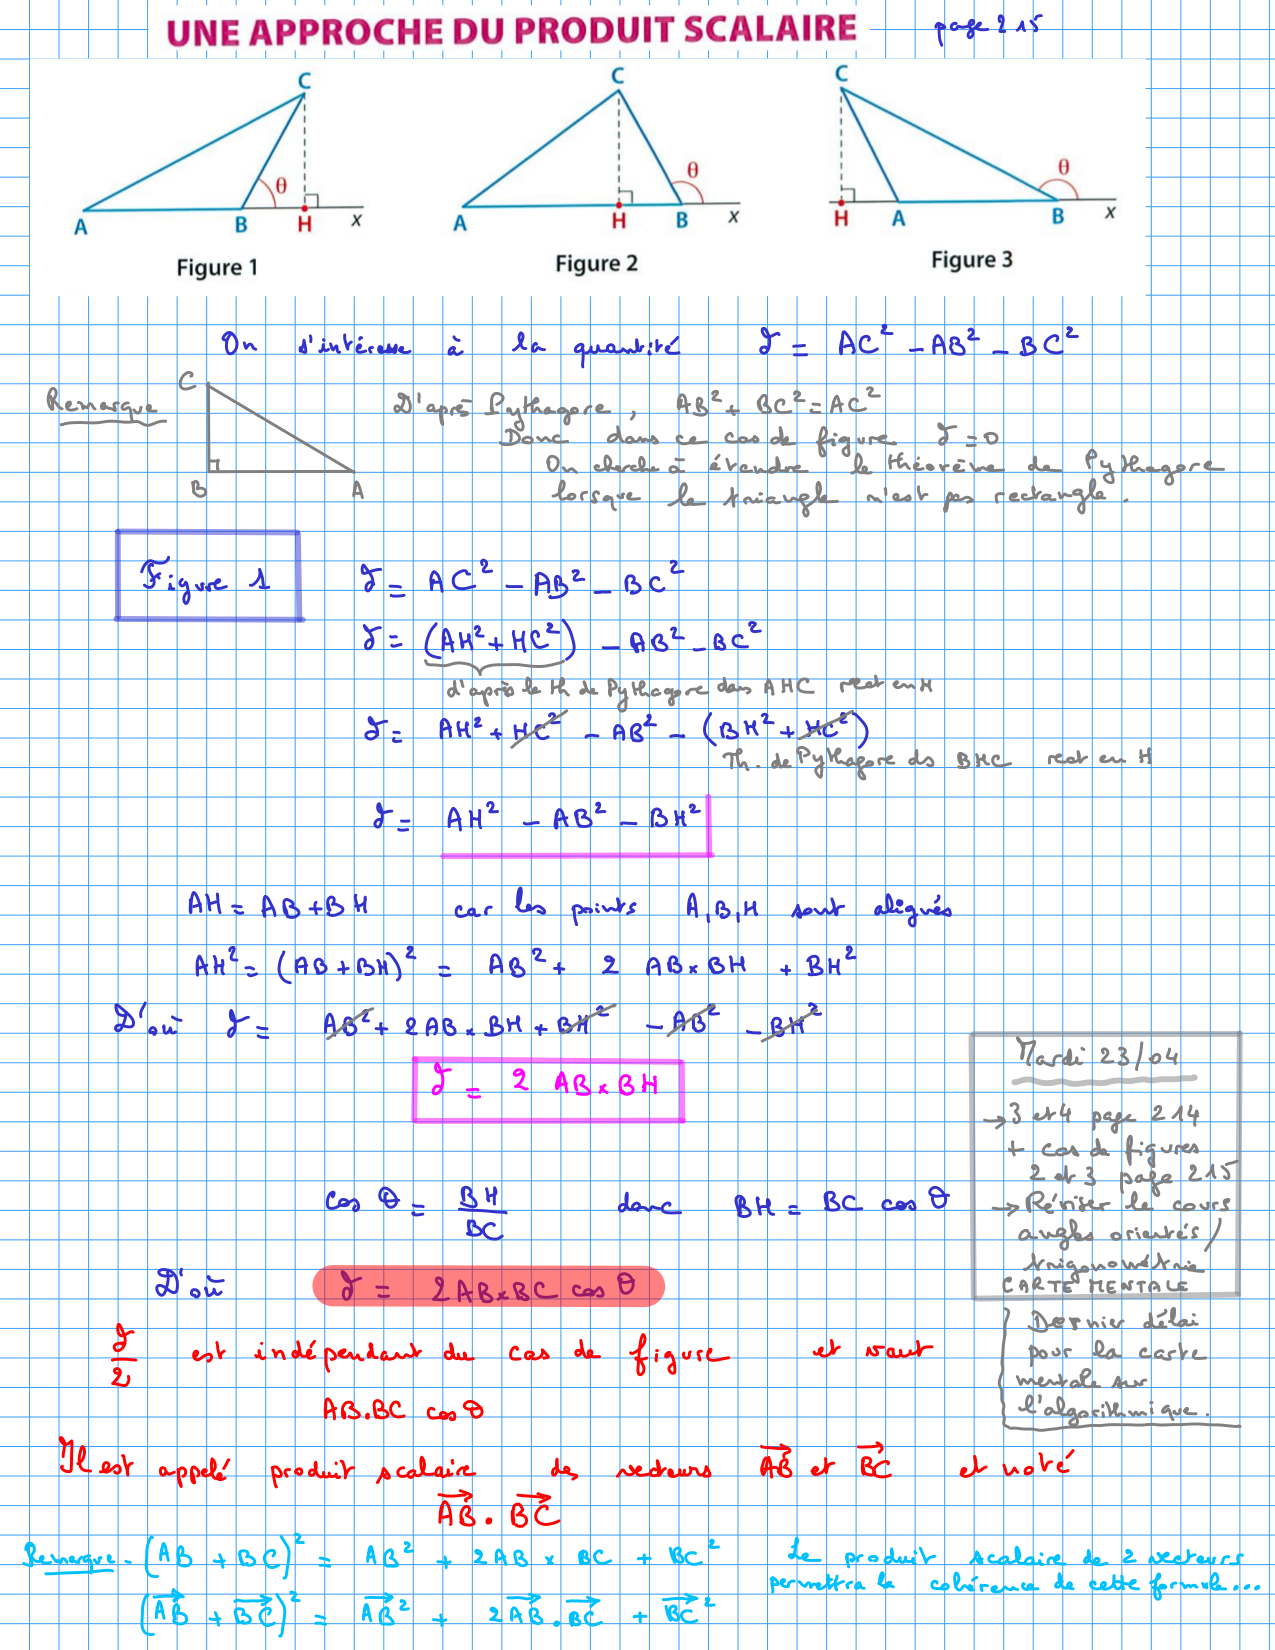 UNE APPROCHE DU PRODUIT SCALAIRE page 215
C C C
θ θ θ
A B H x A H B x H A B x
Figure 1 Figure 2 Figure 3
On s'intéresse à la quantité 𝒥 = AC² - AB² - BC²
Remarque C B A
D'après Pythagore, AB² + BC² = AC²
Donc dans ce cas de figure 𝒥 = 0
On cherche à étendre le théorème de Pythagore
lorsque le triangle n'est pas rectangle.
Figure 1 𝒥 = AC² - AB² - BC²
𝒥 = (AH² + HC²) - AB² - BC²
d'après le th de Pythagore dans AHC rect en H
𝒥 = AH² + HC² - AB² - (BH² + HC²)
Th. de Pythagore ds BHC rect en H
𝒥 = AH² - AB² - BH²
AH = AB + BH car les points A, B, H sont alignés
AH² = (AB + BH)² = AB² + 2 AB × BH + BH²
D'où 𝒥 = AB² + 2AB × BH + BH² - AB² - BH²
𝒥 = 2 AB × BH
cos θ = BH/BC donc BH = BC cos θ
D'où 𝒥 = 2AB×BC cos θ
𝒥/2 est indépendant du cas de figure et vaut
AB.BC cos θ
Il est appelé produit scalaire des vecteurs A͞B⃗ et B͞C⃗ et noté
A͞B⃗ . B͞C⃗
Remarque - (AB + BC)² = AB² + 2AB × BC + BC²
(A͞B⃗ + B͞C⃗)² = A͞B⃗² + 2A͞B⃗ . B͞C⃗ + B͞C⃗²
Le produit scalaire de 2 vecteurs
permettra la cohérence de cette formule...
Mardi 23/04
→ 3 et 4 page 214
+ cas de figures
2 et 3 page 215
→ Réviser le cours
angles orientés /
trigonométrie
CARTE MENTALE
Dernier délai
pour la carte
mentale sur
l'algorithmique.